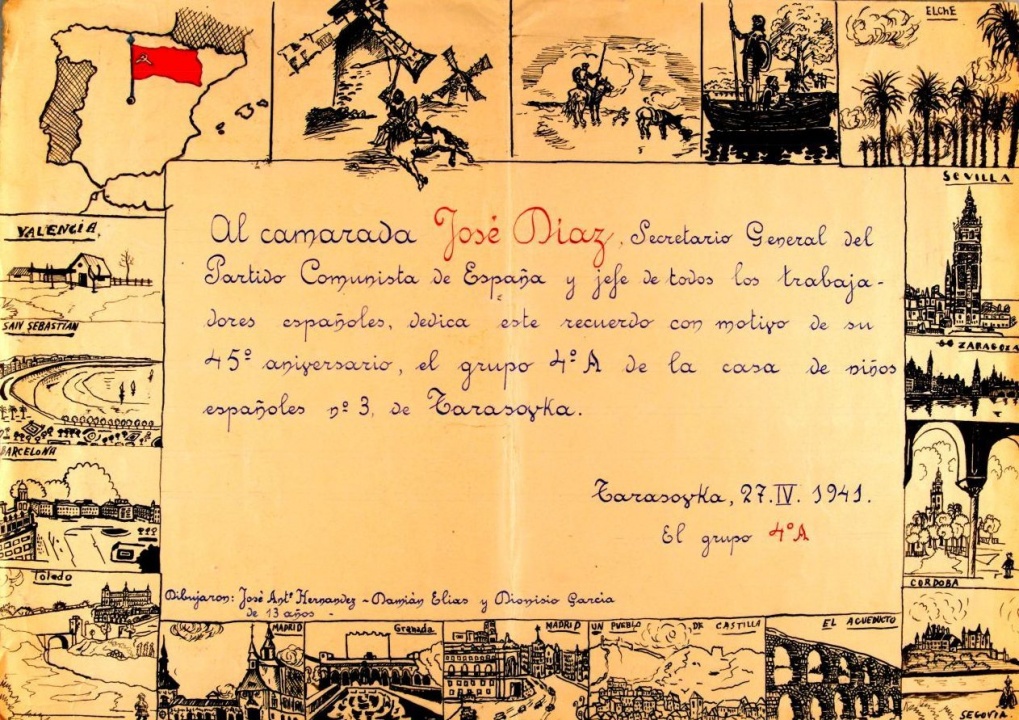 ELCHE
SEVILLA
VALENCIA
SAN SEBASTIAN
ZARAGOZA
BARCELONA
Toledo
CORDOBA
Al camarada José Diaz, Secretario General del
Partido Comunista de España y jefe de todos los trabaja-
dores españoles, dedica este recuerdo con motivo de su
45º aniversario, el grupo 4º A de la casa de niños
españoles nº 3, de Tarasovka.
Tarasovka, 27.IV. 1941.
El grupo 4º A
Dibujaron: José Antº Hernandez - Damián Elias y Dionisio Garcia
de 13 años
MADRID
Granada
MADRID
UN PUEBLO DE CASTILLA
EL AQUEDUCTO
SEGOVIA